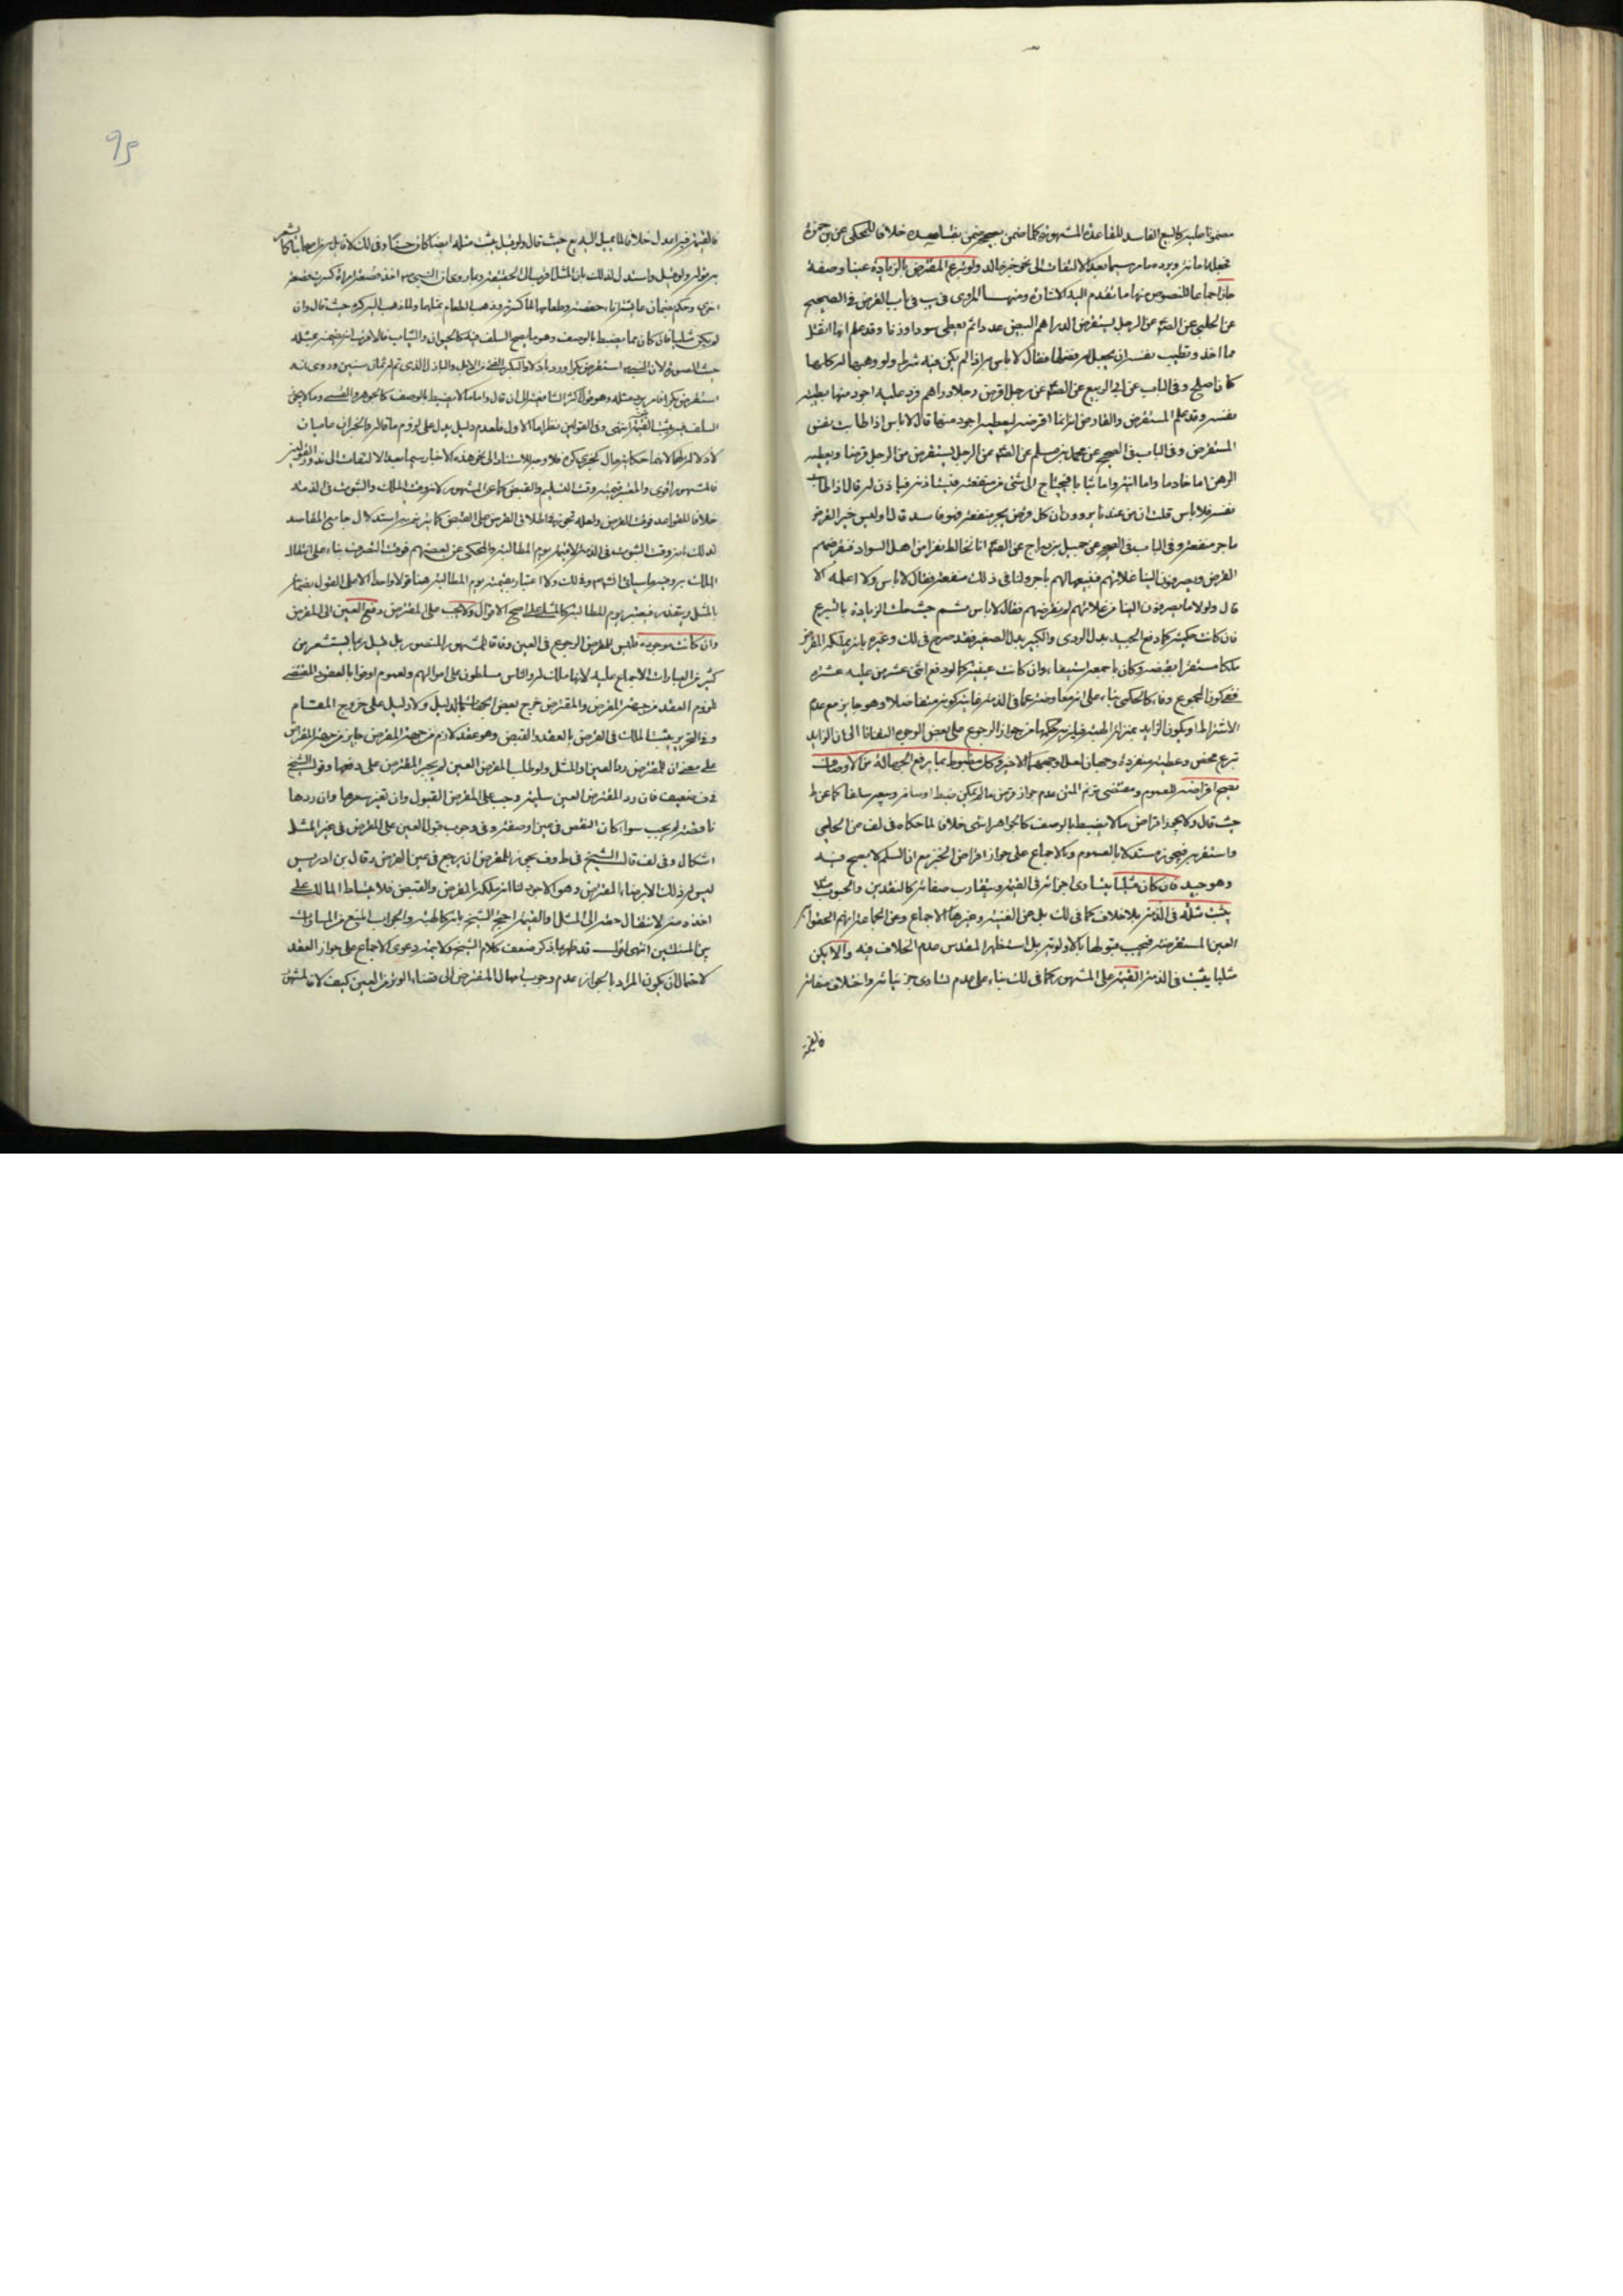 مضمونا عليه كالبيع الفاسد للقاعدة المشهورة كلما ضمن بصحيحه ضمن بفاسده خلافا للمحكي عن بن حمزة
فجعلها امانة ويرده ما مر سيما بعد الالتفات الى نحو خبر خالد ولو تبرع المقترض بالزيادة عينا وصفة
جاز اجماعا للنصوص منها ما تقدم اليه الاشارة ومنها المروى في يب في باب القرض في الصحيح
عن الحلبي عن الصه عن الرجل يستقرض الدراهم البيض عددا ثم يعطى سودا وزنا وقد علم انها اثقل
مما اخذ وتطيب نفسه ان يجعل له فضلها فقال لا باس به اذا لم يكن فيه شرط ولو وهبها له كلها
كان اصلح وفي الباب عن ابي الربيع عن الصه عن رجل اقرض رجلا دراهم فرد عليه اجود منها بطيبة
نفسه وقد علم المستقرض والقارض انه انما اقرضه ليعطيه اجود منها قال لا باس اذا طابت نفس
المستقرض وفي الباب في الصحيح عن محمد بن مسلم عن الصه عن الرجل يستقرض من الرجل قرضا ويعطيه
الرهن اما خادما واما آنية واما ثيابا فيحتاج الى شئ من منفعته فيستاذنه فياذن له قال اذا طابت
نفسه فلا باس قلت ان من عندنا يروون ان كل قرض يجر منفعة فهو فاسد قال اوليس خير القرض
ما جر منفعة وفي الباب في الصحيح عن جميل بن دراج عن الصه انا نخالط نفرا من اهل السواد فنقرضهم
القرض ويصرفون الينا غلاتهم فنبيعها لهم باجر ولنا في ذلك منفعة فقال لا باس ولا اعلمه الا
قال ولولا ما يصرفون الينا من غلاتهم لم نقرضهم فقال لا باس ثم حيث ملك الزيادة بالتبرع
فان كانت حكمية كما دفع الجيد بدل الردى والكبير بدل الصغير فقد صرح في لك وغيره بانه يملكه المقرض
ملكا مستقرا بقبضه وكان باجمعه استيفاء وان كانت عينية كما لو دفع اثنى عشر من عليه عشرة
ففي كون المجموع وفاء كالحكمى بناء على انه معاوضة عما في الذمة غايته كونه متفاضلا وهو جايز مع عدم
الاشتراط او يكون الزايد بمنزلة الهبة فيلزمه حكمها من جواز الرجوع على بعض الوجوه التفاتا الى ان الزايد
تبرع محض وعطية منفردة وجهان لعل اوجههما الاخير وكل مضبوط بما يرفع الجهالة من الاوصاف
يصح اقراضه للعموم ومقتضى المتن عدم جواز قرض ما لم يمكن ضبط اوصافه ويصح سلفا كما عن ط
حيث قال ولا يجوز اقراض ما لا يضبط بالوصف كالجواهر انتهى خلافا لما حكاه في لف عن الحلبي
واستقر به فيجوز مستدلا بالعموم وبالاجماع على جواز اقراض الخبز مع ان السلم لا يصح فيه
وهو جيد فان كان مثليا يتساوى اجزائه في القيمة ويتقارب صفاته كالنقدين والحبوب
يثبت مثله في الذمة بلا خلاف كما في لك بل عن الغنية وغيرها الاجماع وعن الجماعة انهم الحقوا به
العين المستقرضة فيجب قبولها بالاولوية بل استظهر المقدس عدم الخلاف فيه والا يكن
مثليا يثبت في الذمة القيمة على المشهور كما في لك بناء على عدم تساوى جزئياته واختلاف صفاته
فالقيمة
95
فالقيمة فيه اعدل خلافا لما يميل اليه يع حيث قال ولو قيل يثبت مثله ايضا كان حسنا وفي لك لا قايل به من اصحابنا كما يشعر
به قوله ولو قيل واستدل لذلك بان المثل اقرب الى الحقيقة وبما روى ان النبي ص اخذ قصعة امراة كسرت قصعة
اخرى وحكم بضمان عايشة اناء حفصة وطعامها لما كسرته وذهب الطعام بمثلهما ولما ذهب اليه كره حيث قال وان
لم يكن مثليا فان كان مما ينضبط بالوصف وهو ما يصح السلف فيه كالحيوان والثياب فالاقرب انه يضمنه بمثله
حيث الصورة لان النبي ص استقرض بكرا ورد باذلا والبكر الفتى من الابل والباذل الذي تم له ثمان سنين وروى انه
استقرض بكرا فامر برد مثله وهو قول اكثر الشافعية الى ان قال واما ما لا يضبط بالوصف كالجوهر والقسى وما لا يجوز
السلف فيه يثبت القيمة انتهى وفي القولين نظر اما الاول فلعدم دليل يدل على لزوم ما قاله والخبران عاميان
لا دلالة لهما لانهما حكاية حال كخبرى كره فلا وجه للاستناد الى نحو هذه الاخبار سيما بعد الالتفات الى ندور القولين
فالمشهور اقوى والمعتبر قيمته وقت التسليم والقبض كما عن المشهور لانه وقت الملك والثبوت في الذمة
خلافا للقواعد فوقت القرض ولعله تجوز في اطلاق القرض على القبض كما يشعر به استدلال جامع المقاصد
لذلك بانه وقت الثبوت في الذمة لا قيمة يوم المطالبة والمحكى عن بعضهم فوقت التصرف بناء على انتقال
الملك به وجهها سياتى انشاءه وفي لك ولا اعتبار بقيمته يوم المطالبة هنا قولا واحدا الا على القول بضمان
المثل ويتعذر فيعتبر يوم المطالبة كالمثلي على اصح الاقوال ولا يجب على المقترض دفع العين الى المقرض
وان كانت موجودة فليس للمقرض الرجوع في العين وفاقا للمشهور المنصور بل قيل ربما يستشعر من
كثير من العبارات الاجماع عليه لانها ملك له والناس مسلطون على اموالهم ولعموم اوفوا بالعقود المقتضى
للزوم العقد من جهة المقرض والمقترض خرج بعض الجهات بالدليل ولا دليل على خروج المقام
وفي التحرير يثبت الملك في القرض بالعقد والقبض وهو عقد لازم من جهة المقرض جايز من جهة المقترض
على معنى ان للمقترض رد العين او المثل ولو طلب المقرض العين لم يجبر المقترض على دفعها وقول الشيخ
في ف ضعيف فان رد المقترض العين سليمة وجب على المقرض القبول وان تغير سعرها وان ردها
ناقصة لم يجب سواء كان النقص في عين او صفة وفي وجوب قبول العين على المقرض في غير المثل
اشكال وفي لف قال الشيخ في ط وف يجوز للمقرض ان يرجع في عين القرض وقال بن ادريس
ليس له ذلك الا برضاء المقترض وهو الاجود لنا انه ملكه بالقرض والقبض فلا يتسلط المالك على
اخذه منه لانتقال حقه الى المثل او القيمة احتج الشيخ بانه كالهبة والجواب المنع من المساواة
بين المسئلتين انتهى اقول قد ظهر بما ذكر ضعف كلام الشيخ ولا يتمه دعوى الاجماع على جواز العقد
لاحتمال ان يكون المراد بالجواز عدم وجوب امهال المقترض الى قضاء الوطر من العين كيف لا فالمشهور